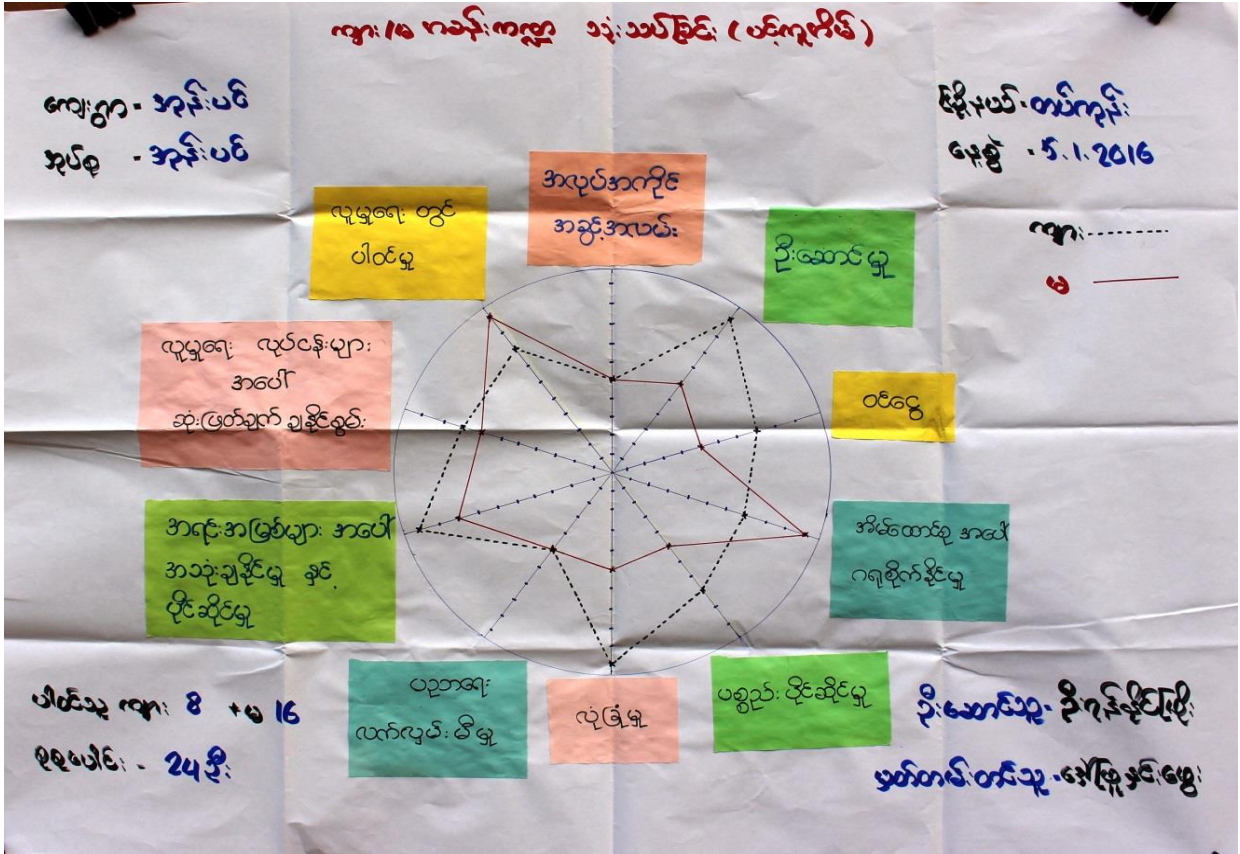 ကျား/မ ကခန်းကဏ္ဍ သုံးသပ်ခြင်း (ပင့်ကူအိမ်)
ကျေးရွာ - အုန်းပင်
အုပ်စု - အုန်းပင်
မြို့နယ် - တပ်ကုန်း
နေ့စွဲ - 5.1.2016
ကျား
မ
အလုပ်အကိုင်
အခွင့်အလမ်း
ဦးဆောင်မှု
ဝင်ငွေ
အိမ်ထောင်စု အပေါ်
ဂရုစိုက်နိုင်မှု
ပစ္စည်း ပိုင်ဆိုင်မှု
လုံခြုံမှု
ပညာရေး
လက်လှမ်းမီမှု
အရင်းအမြစ်များ အပေါ်
အသုံးချနိုင်မှု နှင့်
ပိုင်ဆိုင်မှု
လူမှုရေး လုပ်ငန်းများ
အပေါ်
ဆုံးဖြတ်ချက် ချနိုင်စွမ်း
လူမှုရေး တွင်
ပါဝင်မှု
ပါဝင်သူ ကျား 8 + မ 16
စုစုပေါင်း - 24 ဦး
ဦးဆောင်သူ -
မှတ်တမ်းတင်သူ - ဒေါ်ဖြူနှင်းဖွေး